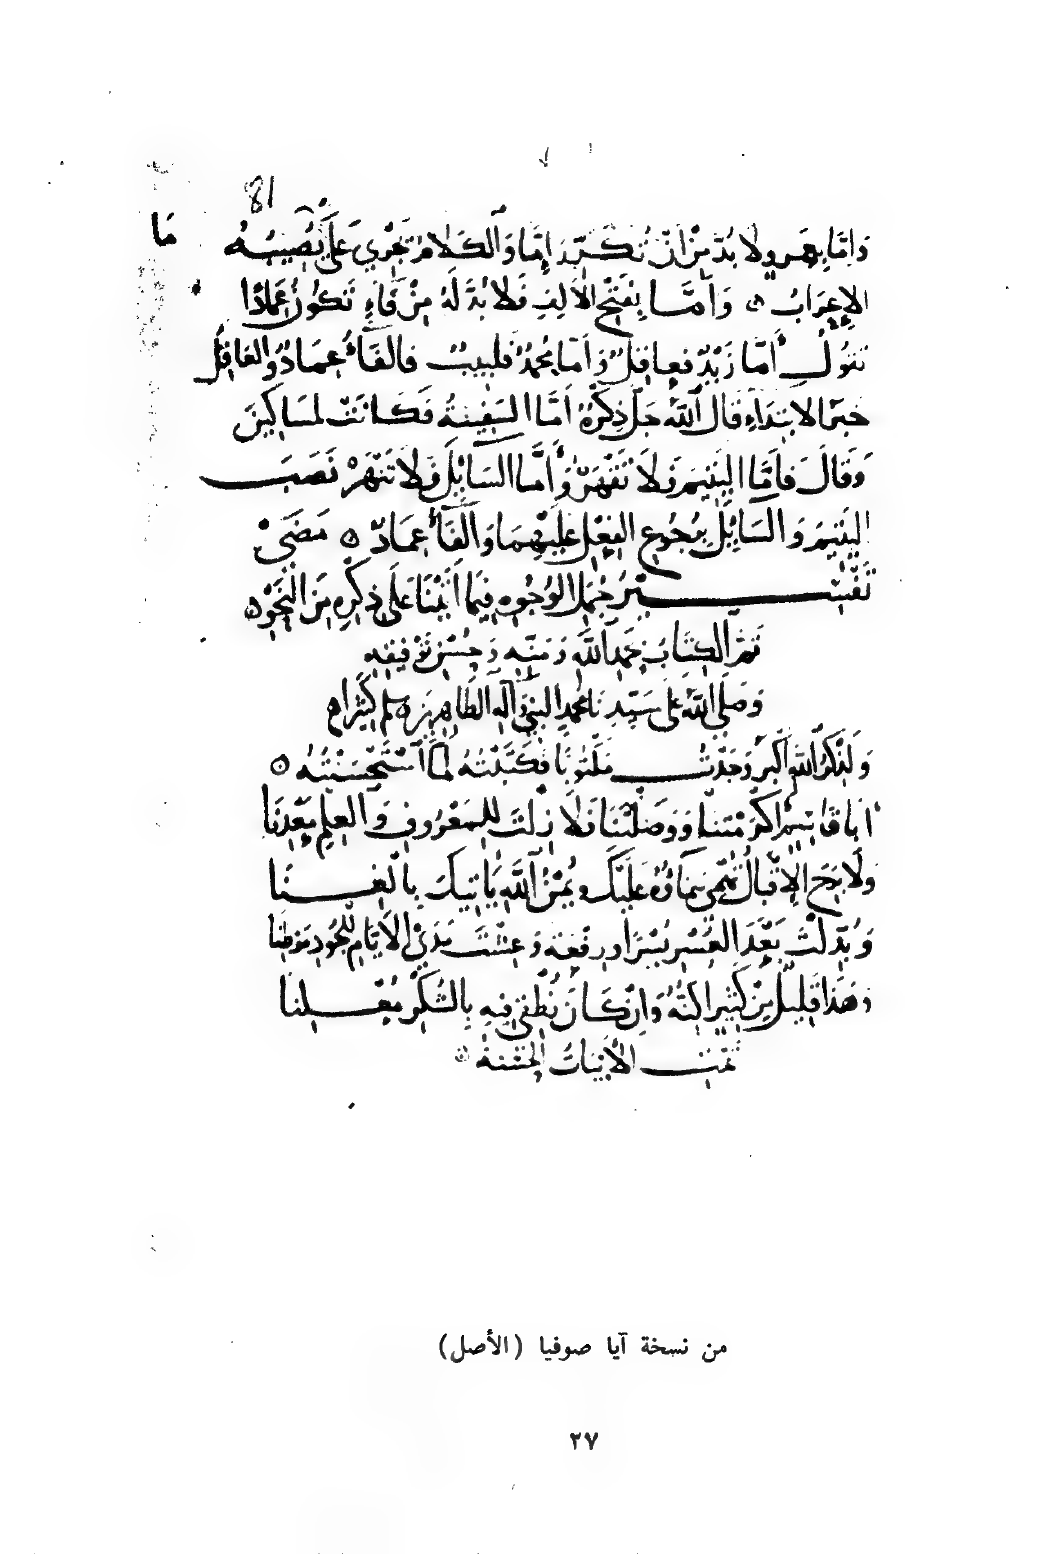 81
ما
وامّا بعمرو ولا بُدّ مِنْ أنْ تُكَرِّر إمّا وَالْكَلامُ يَجْري عَلَى نَصِيبُه
الإعرابُ وَأمَّا بِفَتْحِ الألِفِ فَلا بُدَّ لَهُ مِنْ فَاءٍ تَكُونُ عِمَادًا
تقولُ أمّا زَيْدٌ فعاقِلٌ وَأمّا محمّدٌ فلبيبٌ فالفَاءُ عِمَادٌ والعاقِلُ
خَبَرُ الابتداءِ قالَ اللهُ جَلّ ذِكْرُهُ أمّا السَّفِينَةُ فَكانَتْ لِمَسَاكِينَ
وَقَالَ فأمّا اليَتِيمَ فَلَا تَقْهَرْ وَأمّا السَّائِلَ فَلا تَنْهَرْ نَصَبَ
اليَتِيمَ وَالسَّائِلَ بِرُجُوعِ الفِعْلِ عَلَيْهِمَا وَالْفَاءُ عِمَادٌ مَضَى
تَفْسِيرُ جُمَلِ الوُجُوهِ فِيمَا أتَيْنَا عَلَى ذِكْرِهِ مِنَ النَّحْوِ
تمّ الكِتَابُ بِحَمْدِ اللهِ وَمَنِّهِ وَحُسْنِ تَوْفِيقِهِ
وَصَلّى اللهُ عَلَى سَيّدِنَا مُحَمَّدٍ النبيِّ وآلِهِ الطَّاهِرِينَ وسلم كثيرا
وَلَذِكْرُ اللهِ أكْبَرُ وَجَدْتُ مَكْتُوبًا فَكَتَبْتُهُ لَمَّا اسْتَحْسَنْتُهُ
أبا قاسِمٍ أكْرَمْتَنا وَوَصَلْتَنَا فَلَا زِلْتَ لِلمَعْرُوفِ وَالعِلْمِ مَعْدِنَا
ولا بَرِحَ الإقْبالُ عَلَيْكَ وَيُمْنُ اللهِ يَأتيكَ بِالْغِنَا
وَبُدِّلْتَ بَعْدَ العُسْرِ يُسْرًا ورِفْعَةً وَعِشْتَ مَدَى الأيّامِ لِلْجُودِ مَوْطِنا
وهَذَا قَلِيلٌ مِنْ كَثِيرٍ وَإنْ كَانَ نُطْقي فيهِ بِالشُّكْرِ مُعْلِنا
تمت الأبياتُ الحَسَنَةُ
من نسخة آيا صوفيا (الأصل)
٢٧